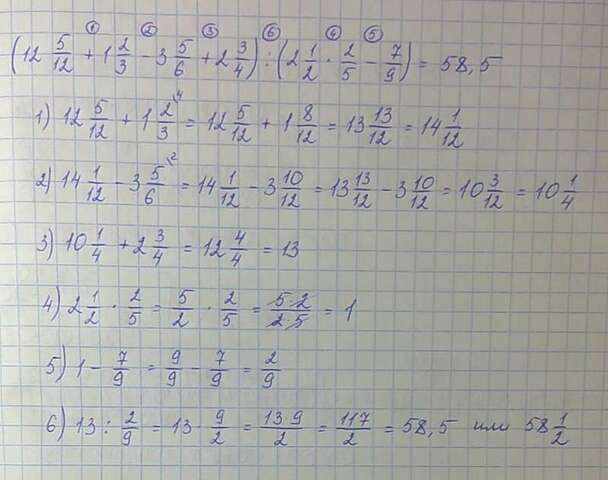 ① ② ③ ⑥ ④ ⑤
(12 5/12 + 1 2/3 - 3 5/6 + 2 3/4) : (2 1/2 · 2/5 - 7/9) = 58,5
1) 12 5/12 + 1 2/3 \4 = 12 5/12 + 1 8/12 = 13 13/12 = 14 1/12
2) 14 1/12 - 3 5/6 \2 = 14 1/12 - 3 10/12 = 13 13/12 - 3 10/12 = 10 3/12 = 10 1/4
3) 10 1/4 + 2 3/4 = 12 4/4 = 13
4) 2 1/2 · 2/5 = 5/2 · 2/5 = 5·2/2·5 = 1
5) 1 - 7/9 = 9/9 - 7/9 = 2/9
6) 13 : 2/9 = 13 · 9/2 = 13·9/2 = 117/2 = 58,5 или 58 1/2